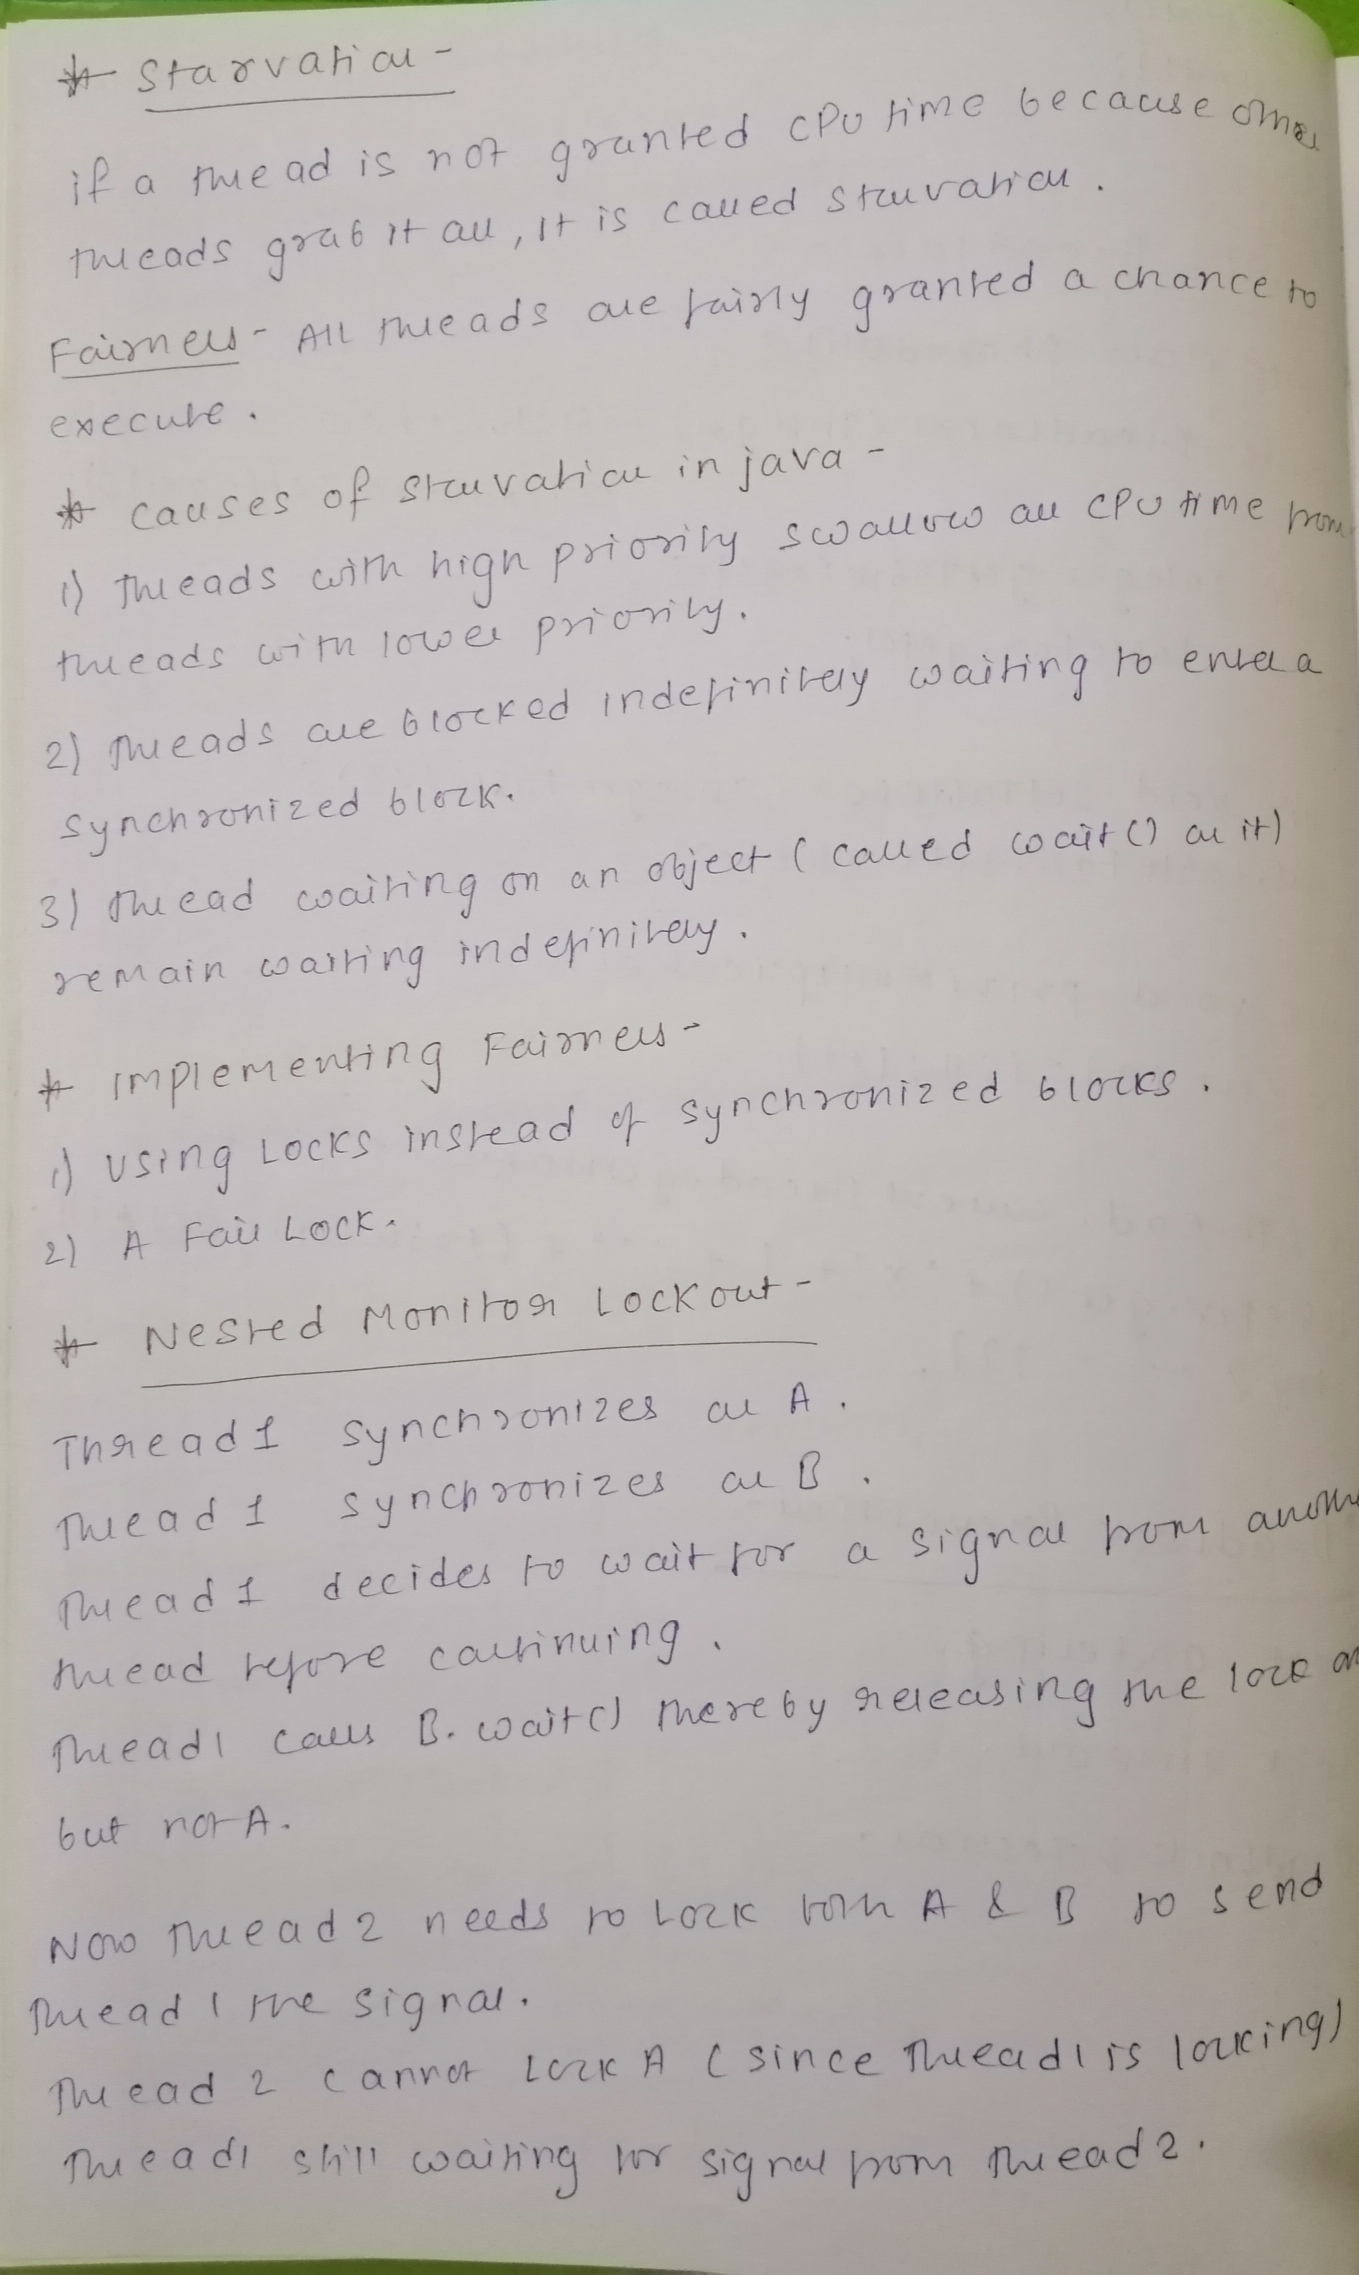 * Starvation -
if a thread is not granted CPU time because other
threads grab it all, it is called starvation.
Fairness - All threads are fairly granted a chance to
execute.
* causes of starvation in java -
1) Threads with high priority swallow all CPU time from
threads with lower priority.
2) Threads are blocked indefinitely waiting to enter a
synchronized block.
3) Thread waiting on an object (called wait() on it)
remain waiting indefinitely.
* Implementing Fairness -
1) Using Locks instead of synchronized blocks.
2) A Fair Lock.
* Nested Monitor Lockout -
Thread 1 synchronizes on A.
Thread 1 synchronizes on B.
Thread 1 decides to wait for a signal from another
thread before continuing.
Thread 1 calls B.wait() thereby releasing the lock on
but not A.
Now Thread 2 needs to Lock both A & B to send
Thread 1 the signal.
Thread 2 cannot Lock A (since Thread 1 is locking)
Thread 1 still waiting for signal from Thread 2.